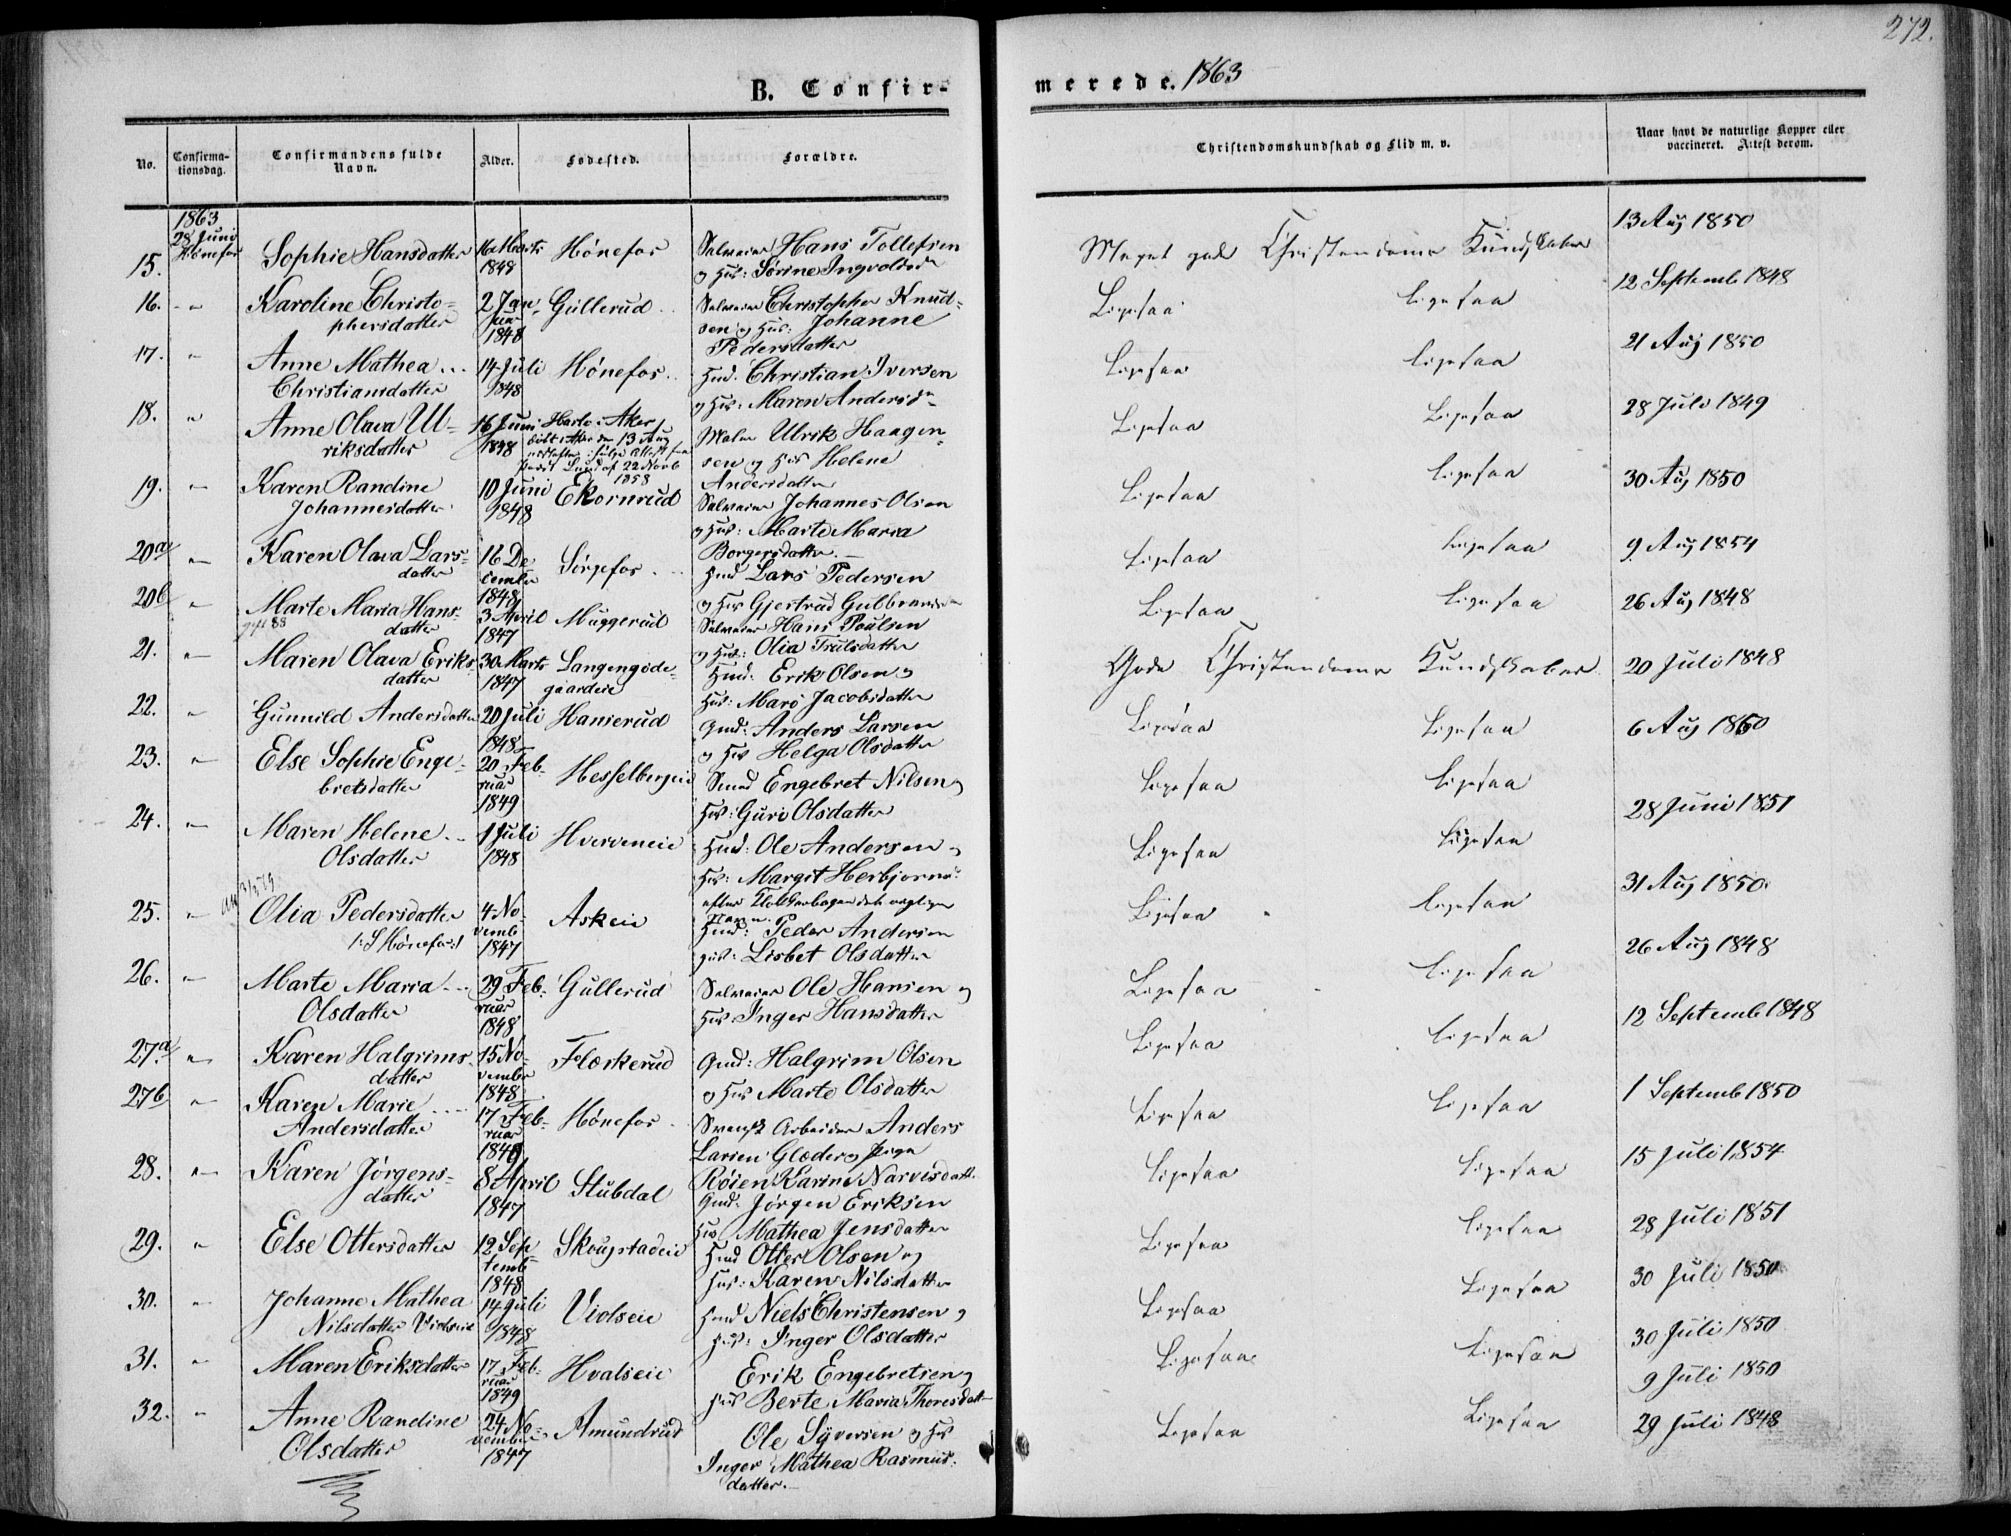 272.
B. Confir-
merede. 1863
No.
Confirma-
tionsdag.
Confirmandens fulde
Navn.
Alder.
Fødested.
Forældre.
Christendomskundskab og Flid m. v.
Naar havt de naturlige Kopper eller
vaccineret. Attest derom.
1863
28 Juni
Hønefos
15. Sophie Hansdatter 16 Marts 1848 Hønefos
Hans Tollefsen
Sørine Ingvolds
Meget gode Christendoms Kundskaber 13 Aug 1850
16. - " Karoline Christo-
phersdatter
2 Jan-
uar
1848
Gullerud
Christopher Knud-
sen og Hus: Johanne
Pedersdatter
Ligesaa Ligesaa 12 Septemb 1848
17. " Anne Mathea
Christiansdatter
14 Juli
1848
Hønefos
Hmd: Christian Iversen
og Hus: Maren Andersd
Ligesaa Ligesaa 21 Aug 1850
18. " Anne Olava Ul-
riksdatter
16 Juni
1848
Aker
den 13 Aug
22 Novb
1858
Maler Ulrik Haagen-
sen og Hus Helene
Andersdatter
Ligesaa Ligesaa 28 Juli 1849
19. " Karen Randine
Johannesdatter
10 Juni
1848
Ekornrud
Johannes Olsen
og Hus: Marte Maria
Borgersdatter.
Ligesaa Ligesaa 30 Aug 1850
20a " Karen Olava Lars-
datter
16 De
cember
1848
Sørgefos
Hmd Lars Pedersen
og Hus Gjertrud Gulbrands
Ligesaa Ligesaa 9. Aug 1854
20b " Marte Maria Hans-
datter
gift 88
3 April
1847
Muggerud
Hans Poulsen
og Hus: Olia Trulsdatter
Ligesaa Ligesaa 26 Aug 1848
21. " Maren Olava Eriks-
datter
30 Marts
1847
Langengode-
gaardeie
Hmd: Erik Olsen og
Hus: Mari Jacobsdatter
Gode Christendoms Kundskaber 20 Juli 1848
22. " Gunnild Andersdatter
20 Juli
1848
Hanserud
Gmd: Anders Larsen
og Hus Helga Olsdatter
Ligesaa Ligesaa 6 Aug 1860
23. " Else Sophie Enge-
bretsdatter
20 Feb-
ruar
1849
Hesselbergeie
Engebret Nilsen og
Hus: Guri Olsdatter
Ligesaa Ligesaa
28 Juni 1851
24. " Maren Helene
Olsdatter
1 Juli
1848
Hverveneie
Hmd: Ole Andersen og
Hus: Margit Herbjørns
Ligesaa Ligesaa
31 Aug 1850
25. " Olia Pedersdatter
4 No-
vemb
1847
Askeie
Hmd: Peder Andersen
Hus: Lisbet Olsdatter
Ligesaa Ligesaa
26 Aug 1848
26. " Marte Maria
Olsdatter
29 Feb-
ruar
1848
Gullerud
Ole Hansen og
Hus Inger Hansdatter
Ligesaa Ligesaa
12 Septemb 1848
27a " Karen Halgrims-
datter
15 No-
vember
1848
Flaskerud
Gmd: Halgrim Olsen
og Hus Marte Olsdatter
Ligesaa Ligesaa
1 Septemb 1850
27b " Karen Marie
Andersdatter
17 Feb-
ruar
1849
Hønefos
Svensk Arbeider Anders
Larsen
Karine Narvesdatt.
Ligesaa Ligesaa
15 Juli 1854
28. " Karen Jørgens-
datter
8 April
1847
Stubdal
Gmd: Jørgen Eriksen
Hus Mathea Jensdatter
Ligesaa Ligesaa
28 Juli 1851
29. " Else Ottersdatter
12 Sep-
temb
1848
Skougstadeie
Hmd Otter Olsen og
Hus: Karen Nilsdatter
Ligesaa Ligesaa
30 Juli 1850
30. " Johanne Mathea
Nilsdatter Violseie
14 Juli
1848
Violseie
Hmd Niels Christensen og
Hus: Inger Olsdatter
Ligesaa Ligesaa
30 Juli 1850
31. " Maren Eriksdatter
17 Feb-
ruar
1849
Hvalseie
Erik Engebretsen og
Hus Berte Maria Thoresdatt
Ligesaa Ligesaa
9 Juli 1850
32. " Anne Randine
Olsdatter
24 No-
vember
1847
Amundrud
Ole Syversen og Hus
Inger Mathea Rasmus-
datter.
Ligesaa Ligesaa
29 Juli 1848